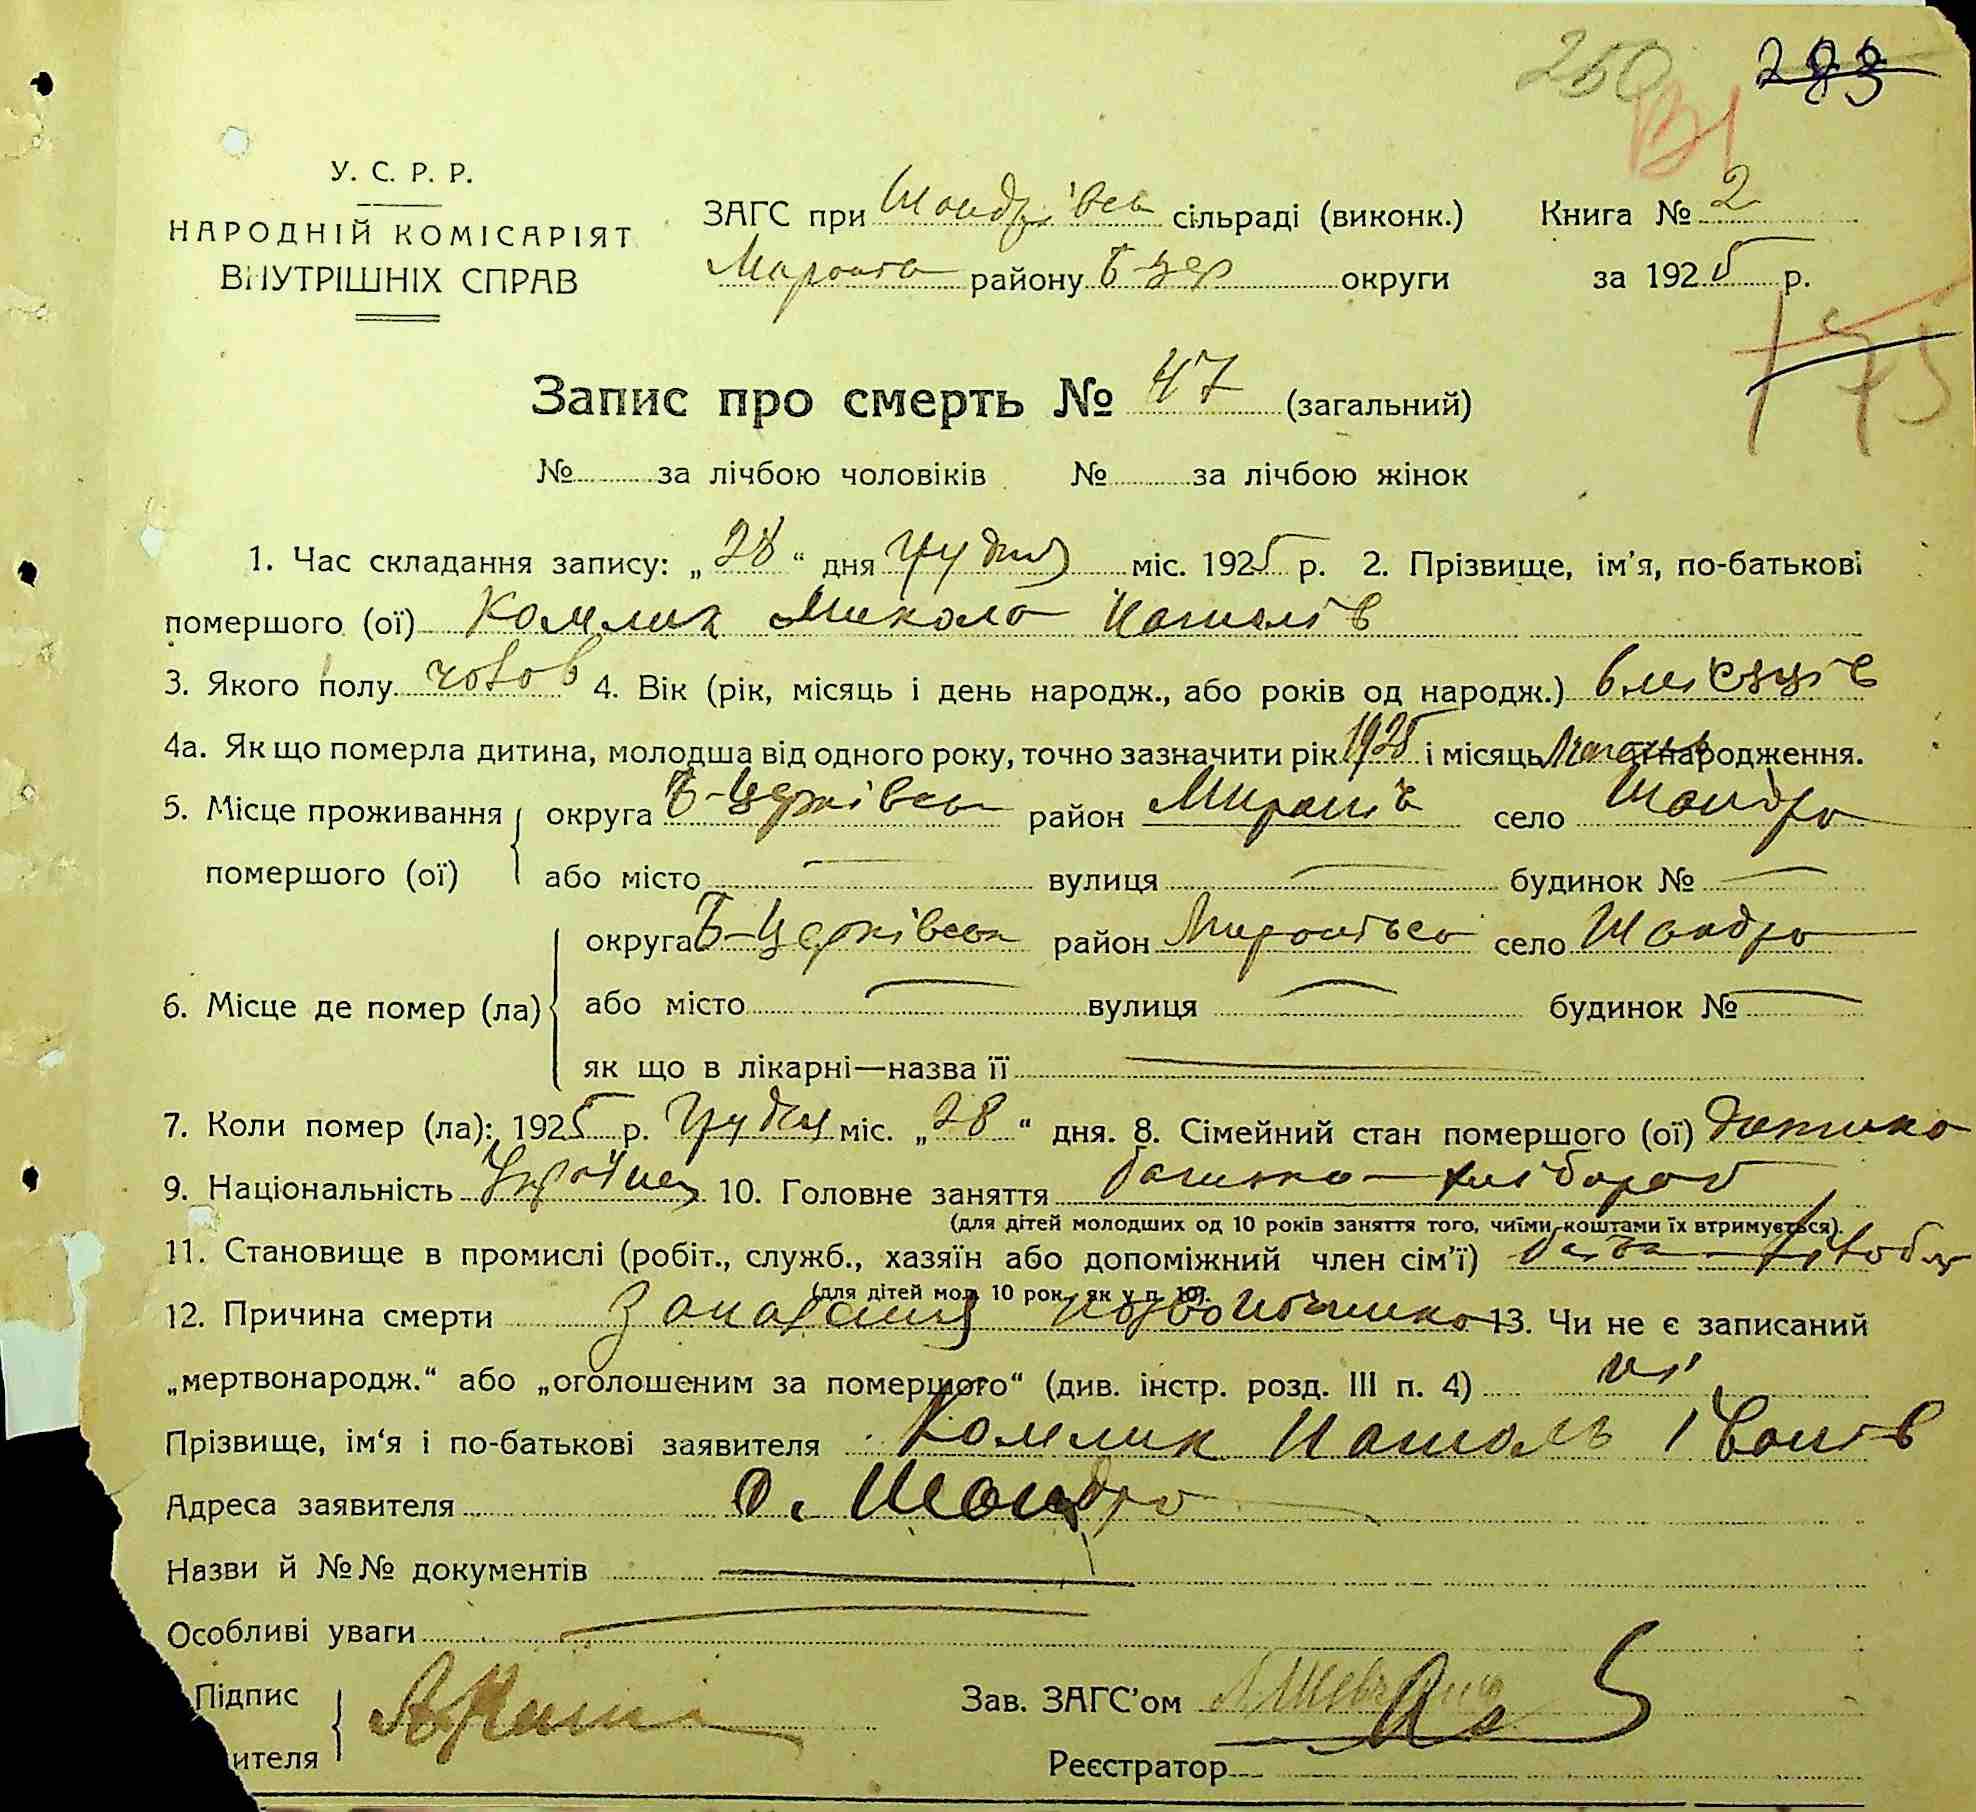 250 283
В1
У. С. Р. Р.
НАРОДНІЙ КОМІСАРІЯТ
ВНУТРІШНІХ СПРАВ
ЗАГС при Шандрівськ сільраді (виконк.) Книга № 2
району Б-Цер округи за 1925 р.
Запис про смерть № 47 (загальний)
№ за лічбою чоловіків № за лічбою жінок
1. Час складання запису: „28“ дня грудня міс. 1925 р. 2. Прізвище, ім'я, по-батькові
помершого (ої) Комлик Микола
3. Якого полу чолов 4. Вік (рік, місяць і день народж., або років од народж.) 6 місяців
4а. Як що померла дитина, молодша від одного року, точно зазначити рік 1925 і місяць народження.
5. Місце проживання помершого (ої) округа Б-Церківськ район Миронів село Шандра
або місто — вулиця — будинок № —
6. Місце де помер (ла) округа Б-Церківськ район село Шандра
або місто — вулиця — будинок № —
як що в лікарні—назва її —
7. Коли помер (ла): 1925 р. Грудня міс. „28“ дня. 8. Сімейний стан помершого (ої) дитина
9. Національність Українец 10. Головне заняття батько – хлібороб
(для дітей молодших од 10 років заняття того, чиїми коштами їх втримується).
11. Становище в промислі (робіт., служб., хазяїн або допоміжний член сім'ї)
(для дітей мол. 10 рок. як у п. 10).
12. Причина смерти Запаления 13. Чи не є записаний
„мертвонародж.“ або „оголошеним за помершого“ (див. інстр. розд. III п. 4) ні
Прізвище, ім'я і по-батькові заявителя Комлик Іванів
Адреса заявителя с. Шандра
Назви й №№ документів —
Особливі уваги —
Підпис Зав. ЗАГС'ом
ителя Реєстратор